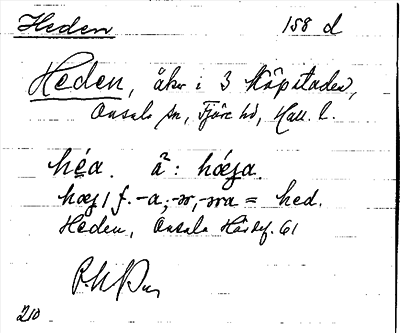 Heden 158 d
Heden, åker i 3 Köpstaden,
Onsala sn, Fjäre hd, Hall. l.
hę́a. å²: hǿʒa.
hœʒ, f. -a; -ər, -əra = hed.
Heden, Onsala Häradsf. 61
210